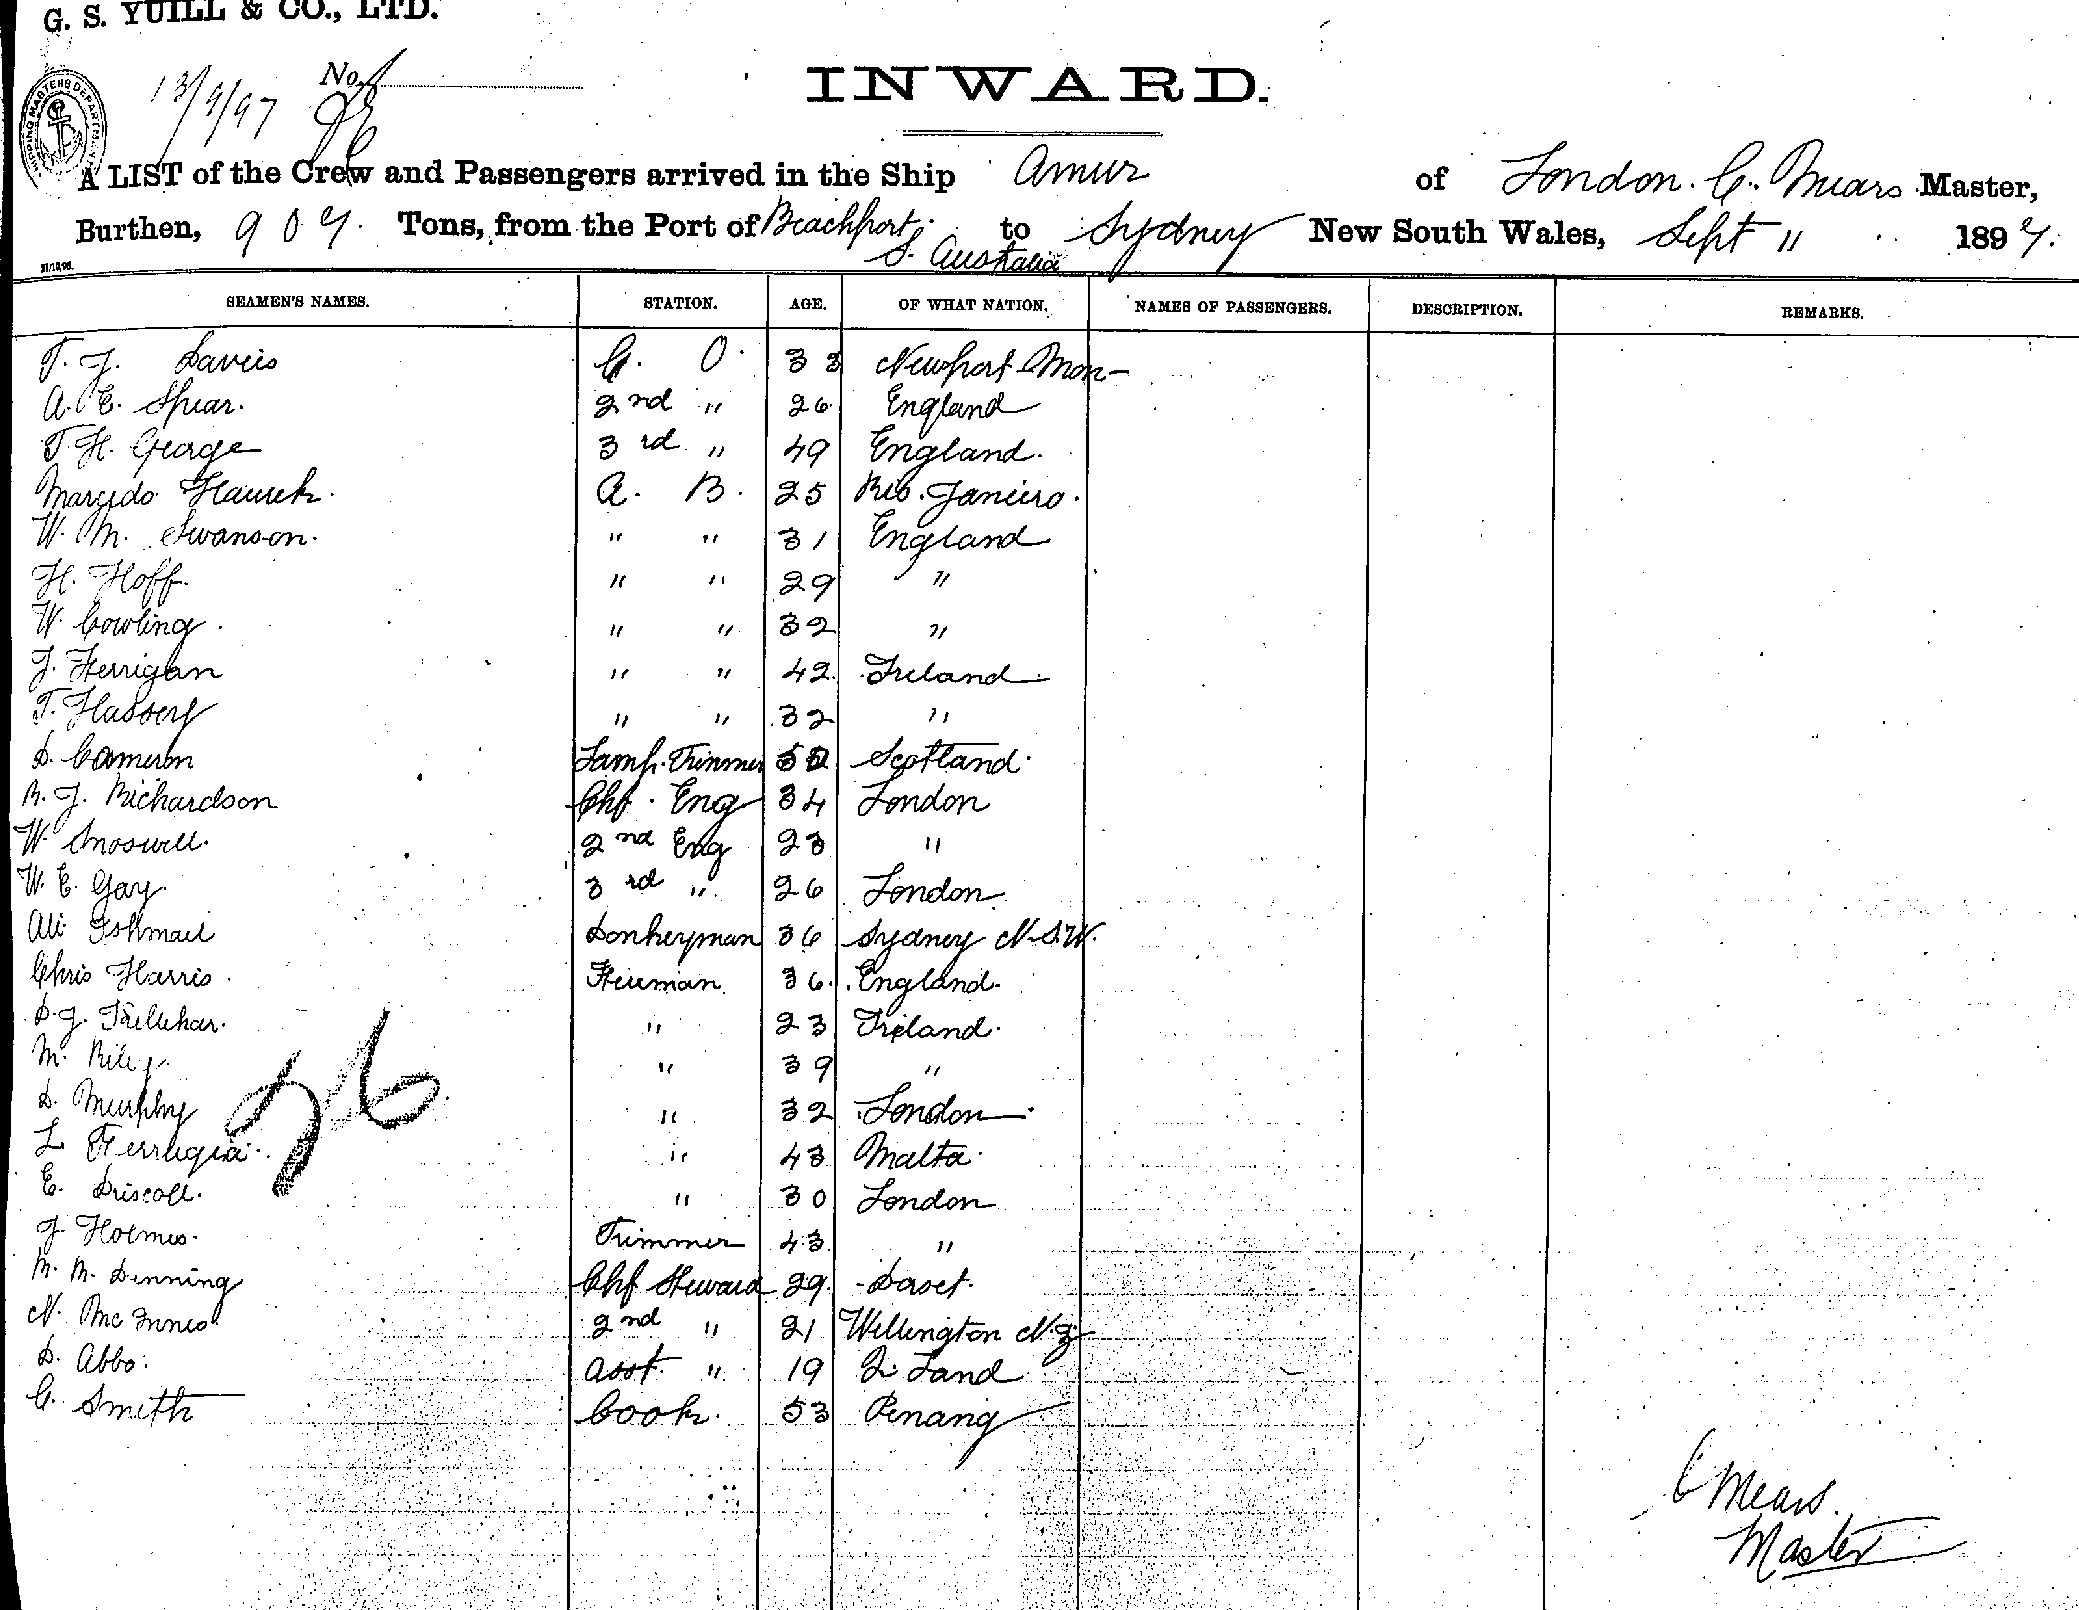 G. S. YUILL & CO., LTD.
13/9/97 No.
INWARD.
A LIST of the Crew and Passengers arrived in the Ship Amur of London. C. Mears Master,
Burthen, 907. Tons, from the Port of Beachport S. Australia to Sydney New South Wales, Sept 11 1897.
SEAMEN'S NAMES. STATION. AGE. OF WHAT NATION. NAMES OF PASSENGERS. DESCRIPTION. REMARKS.
T. J. Davies C. O. 33 Newport Mon-
A. E. Spear. 2nd " 26 England
T. H. George 3rd " 49 England.
A. B. 25 Rio. Janeiro.
W. M. Swanson. " " 31 England
H. Hoff. " " 29 "
W. Cowling. " " 32 "
J. Herrigan " " 42 Ireland
T. " " 32 "
D. Cameron Lamp. Trimmer 50 Scotland.
R. J. Richardson Chf. Eng 34 London
W. Snoswell. 2nd Eng 23 "
W. E. Gay. 3rd " 26 London.
Ali Ishmail Donkeyman 36 Sydney N.S.W.
Chris Harris. Fireman 36 England.
D. J. " 23 Ireland.
M. Riley. " 39 "
D. Murphy " 32 London
L Ferrugia. " 43 Malta.
E. Driscoll. " 30 London
J Holmes. Trimmer 43 "
M. M. Denning Chf Steward 29. Dorset.
N. McInnes 2nd " 21 Wellington N.Z
D. Abbo. Asst. " 19 Q. Land
C. Smith Cook. 53 Penang
26
C Mears.
Master